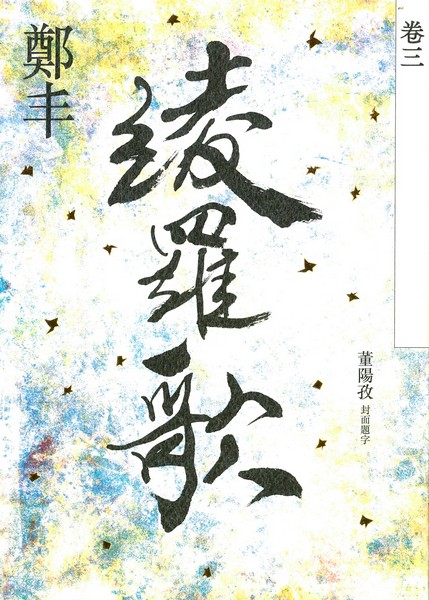 卷三
鄭丰
綾羅歌
董陽孜 封面題字